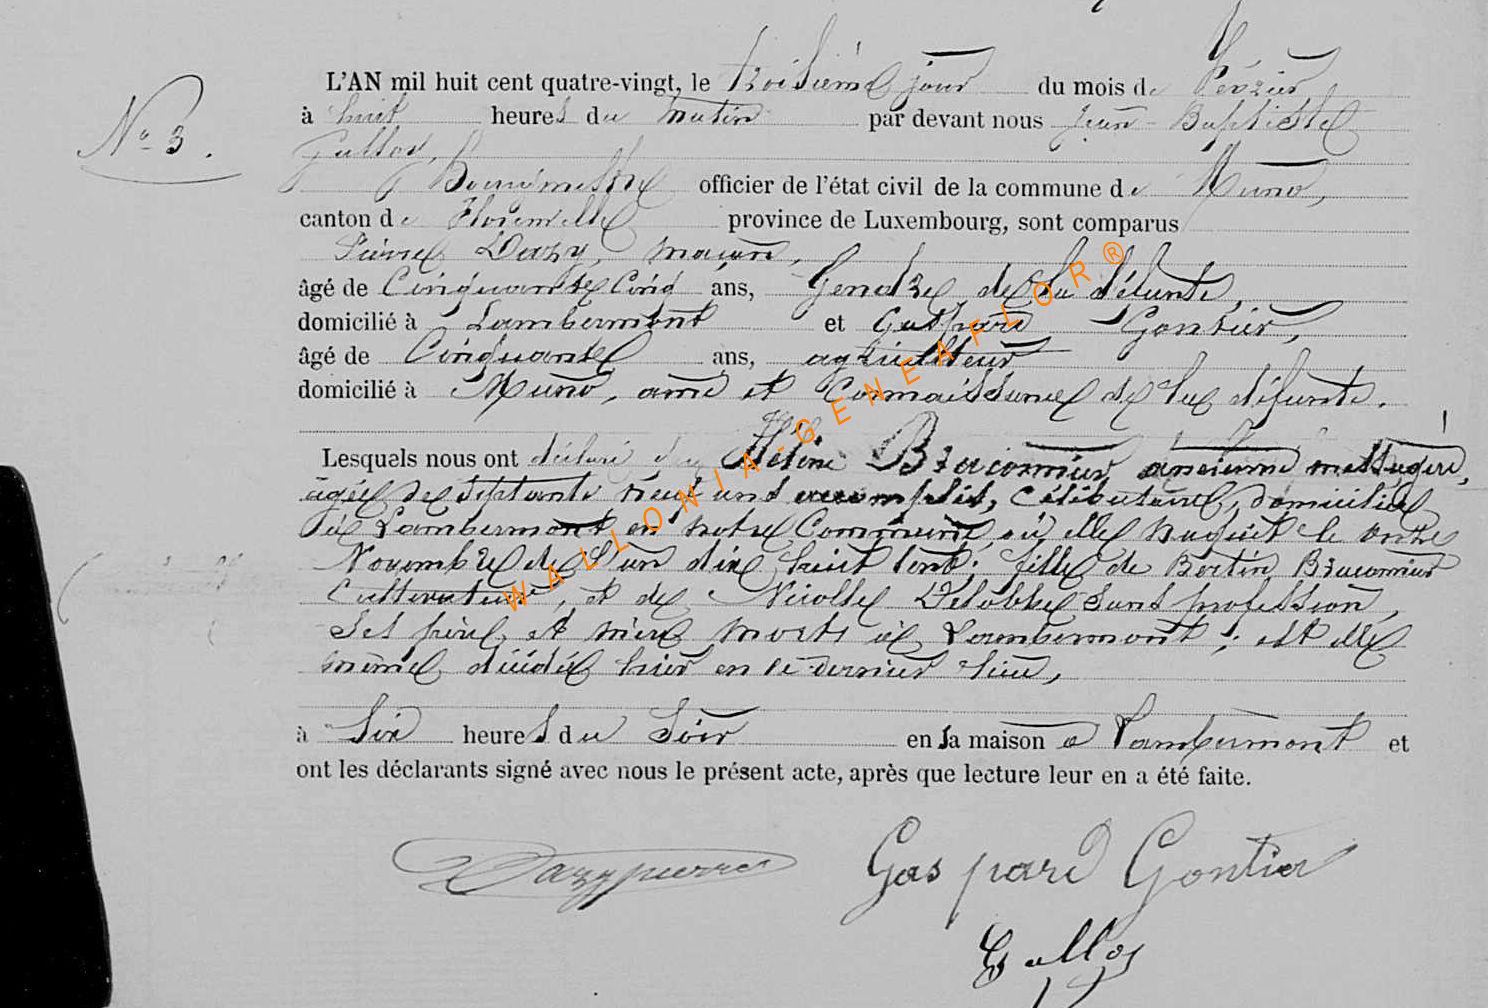 L'AN mil huit cent quatre-vingt, le troisième jour du mois de Février
N° 3.
à huit heures du matin par devant nous Jean-Baptiste
Galloy,
Bourgmestre officier de l'état civil de la commune de Muno,
canton de Florenville province de Luxembourg, sont comparus
Pierre Dazy, maçon,
âgé de Cinquante Cinq ans, Gendre de la défunte,
domicilié à Lambermont et Gaspard Gontier,
âgé de Cinquante ans, agriculteur
domicilié à Muno, ami et Connaissance de la défunte.
Lesquels nous ont déclaré que Hélène Braconnier ancienne messagère,
âgée de septante neuf ans accomplis, Célibataire, domiciliée
à Lambermont en notre Commune, où elle naquit le onze
Novembre de l'an dix huit cent; fille de Bertin Braconnier
Cultivateur, et de Nicolle Delobbe sans profession,
Ses père et mère morts à Lambermont; est elle
même décédée hier en ce dernier lieu,
à Six heures du Soir en sa maison à Lambermont et
ont les déclarants signé avec nous le présent acte, après que lecture leur en a été faite.
Dazy pierre Gaspard Gontier
Galloy
WALLONIA-GENEAFLOR®